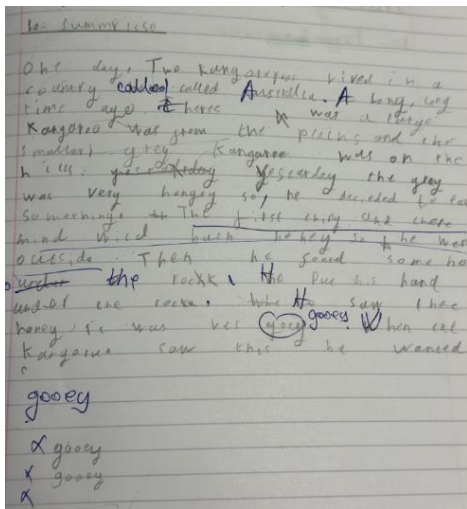 to summrise
One day, Two Kangaroos lived in a
country called called Australia. A long, long
time ago. there was a large
Kangaroo was from the plains and the
smaller, grey Kangaroo was on the
hills. Yesterday the grey
was very hungry so, he decided to eat
something. The first thing and there
mind was honey so he went
outside. Then he found some ho
under the rockk. He Put his hand
under the rock. Who saw
honey it was gooey gooey. When the
Kangaroo saw this he wanted
gooey
gooey
gooey